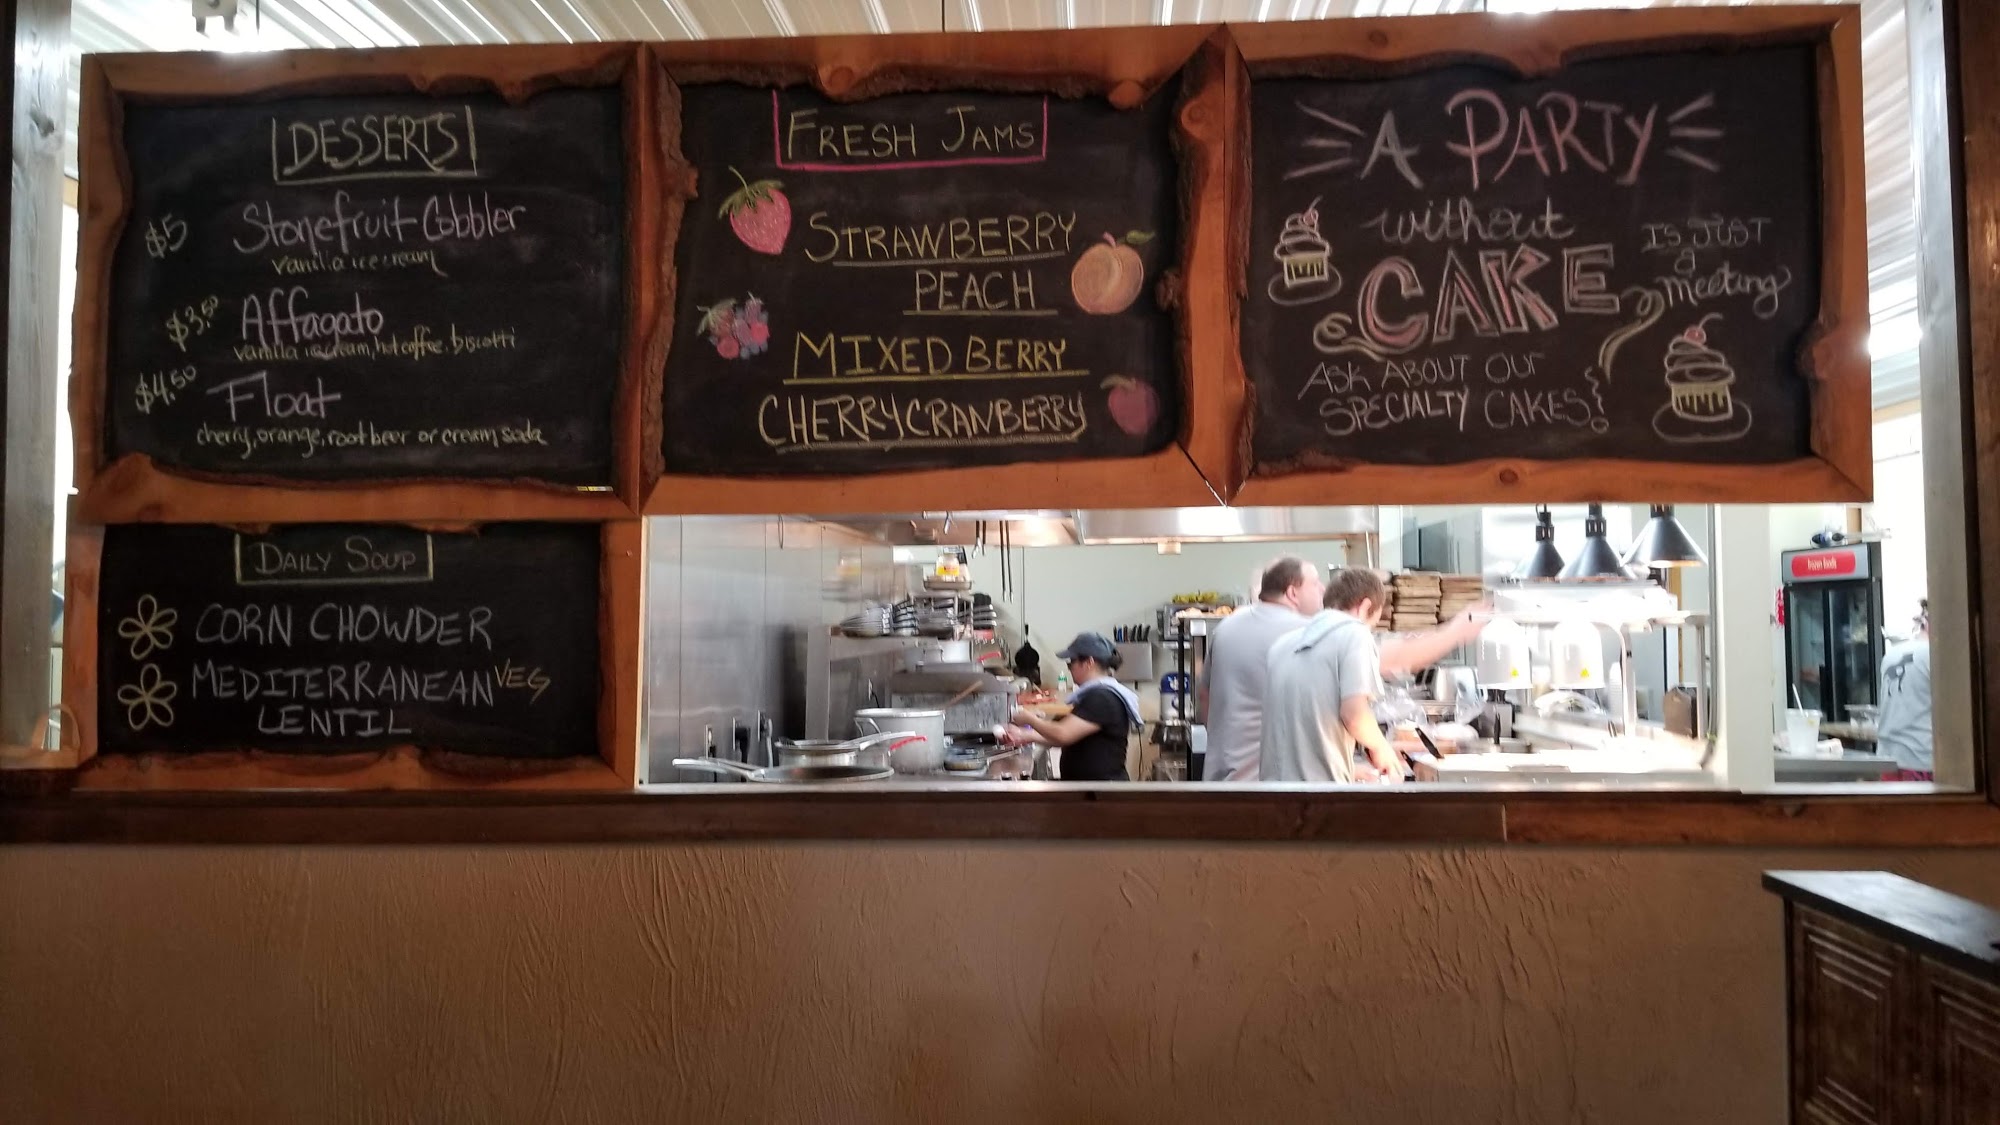 DESSERTS
$5 Stonefruit Cobbler
vanilla icecream
$3.50 Affagato
vanilla icecream, hot coffee, biscotti
$4.50 Float
cherry, orange, rootbeer or cream soda
DAILY SOUP
CORN CHOWDER
MEDITERRANEAN VEG
LENTIL
FRESH JAMS
STRAWBERRY
PEACH
MIXED BERRY
CHERRYCRANBERRY
A PARTY
without
CAKE
IS JUST
a
meeting
ASK ABOUT OUR
SPECIALTY CAKES!